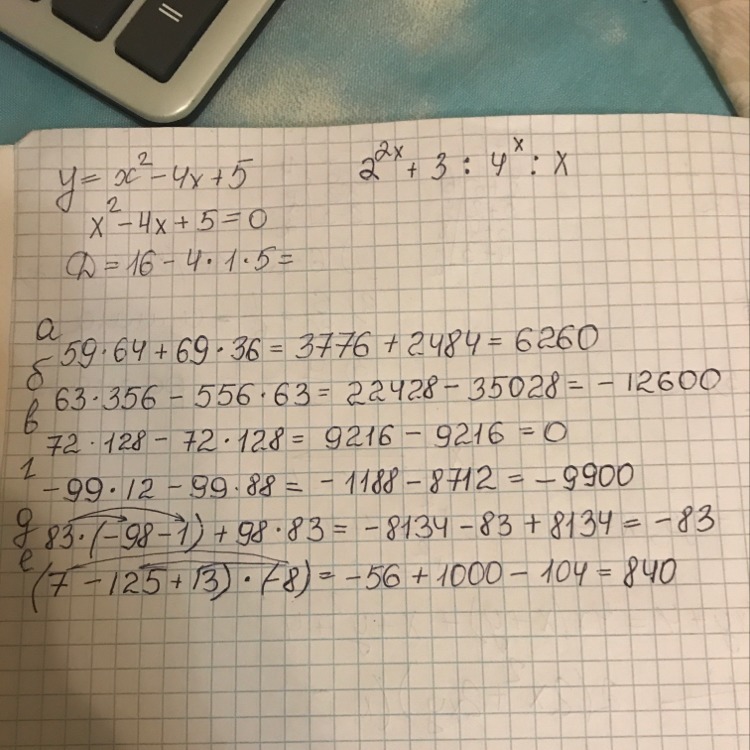 y = x² - 4x + 5
2^{2x} + 3 : 4^x : x
x² - 4x + 5 = 0
D = 16 - 4 · 1 · 5 =
а 59 · 64 + 69 · 36 = 3776 + 2484 = 6260
б 63 · 356 - 556 · 63 = 22428 - 35028 = - 12600
в 72 · 128 - 72 · 128 = 9216 - 9216 = 0
г -99 · 12 - 99 · 88 = -1188 - 8712 = -9900
д 83 · (-98 - 1) + 98 · 83 = -8134 - 83 + 8134 = -83
е (7 - 125 + 13) · (-8) = -56 + 1000 - 104 = 840